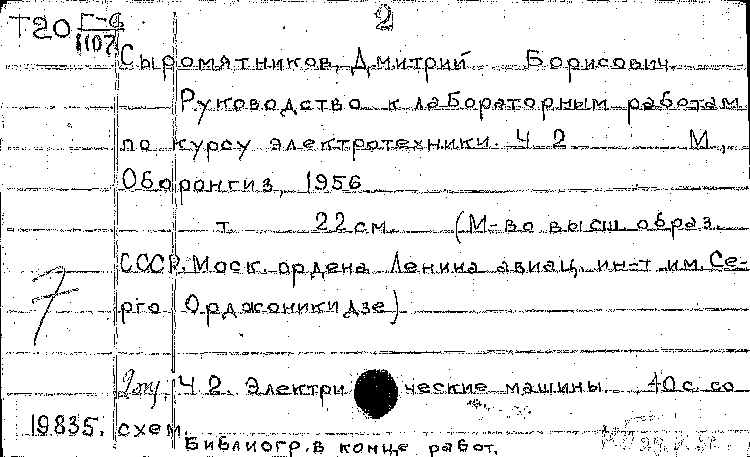 Т20 Г-6 2
1107
Сыромятников, Дмитрий Борисович.
Руководство к лабораторным работам
по курсу электротехники. Ч 2 М.,
Оборонгиз, 1956
т 22 см. (М-во высш. образ.
СССР. Моск. ордена Ленина авиац. ин-т им. Се-
рго Орджоникидзе)
7
Ч 2. Электрические машины. 40 с. со
19835. схем.
Библиогр. в конце работ.